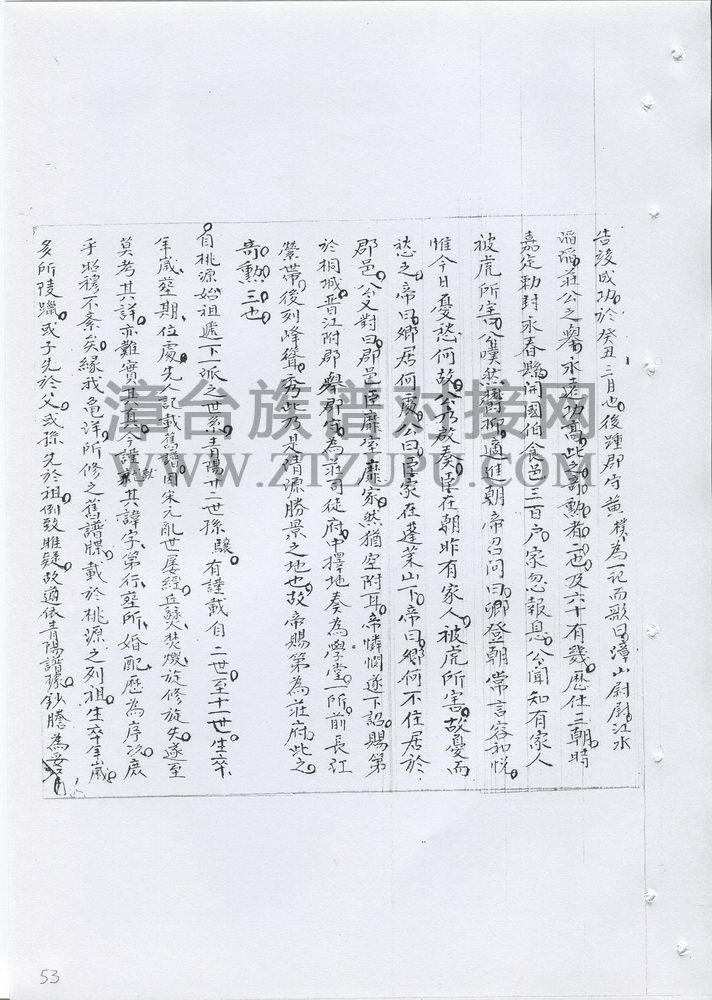 告竣成功於癸丑三月也後踵郡守黄樸為一記而歌曰漳山尉尉江水
滔滔莊公之舉永壽功高此之奇勲者二也及六十有幾歷仕三朝時
嘉定勅封永春縣開國伯食邑三百户家忽報息公聞知有家人
被虎所害公嘆然適進朝帝召问曰卿登朝常言容和悦
惟今日憂愁何故公乃啟奏臣在朝昨有家人被虎所害故憂而
愁之帝曰鄉居何處公曰臣家在蓬莱山下帝曰鄉何不住居於
郡邑公又對曰郡邑臣靡室靡家然猶空附耳帝憐憫遂下詔賜第
於桐城晋江附郡舉郡守為莊司從府中擇地奏為學堂一所前長江
縈帶後列峰聳秀此乃是清源勝景之地也故帝賜第為莊府此之
奇勲三也
自桃源始祖遞下派之世系青陽廿二世孫騤有謹載自二世至十一世生卒
年歲塟期位處先人記載舊譜因宋元亂世屡經兵燹焚燬旋修旋失遂至
莫考其詳亦難實其真今謹就其諱字第行塟所婚配歷為序次庶
乎昭穆不紊矣緣我龟洋所修之舊譜牒載於桃源之列祖生卒年歲
多所陵躐或子先於父或孫先於祖倒致雎疑故適依青陽譜稼鈔謄為妥
漳台族谱对接网
WWW.ZTZUPU.COM
53